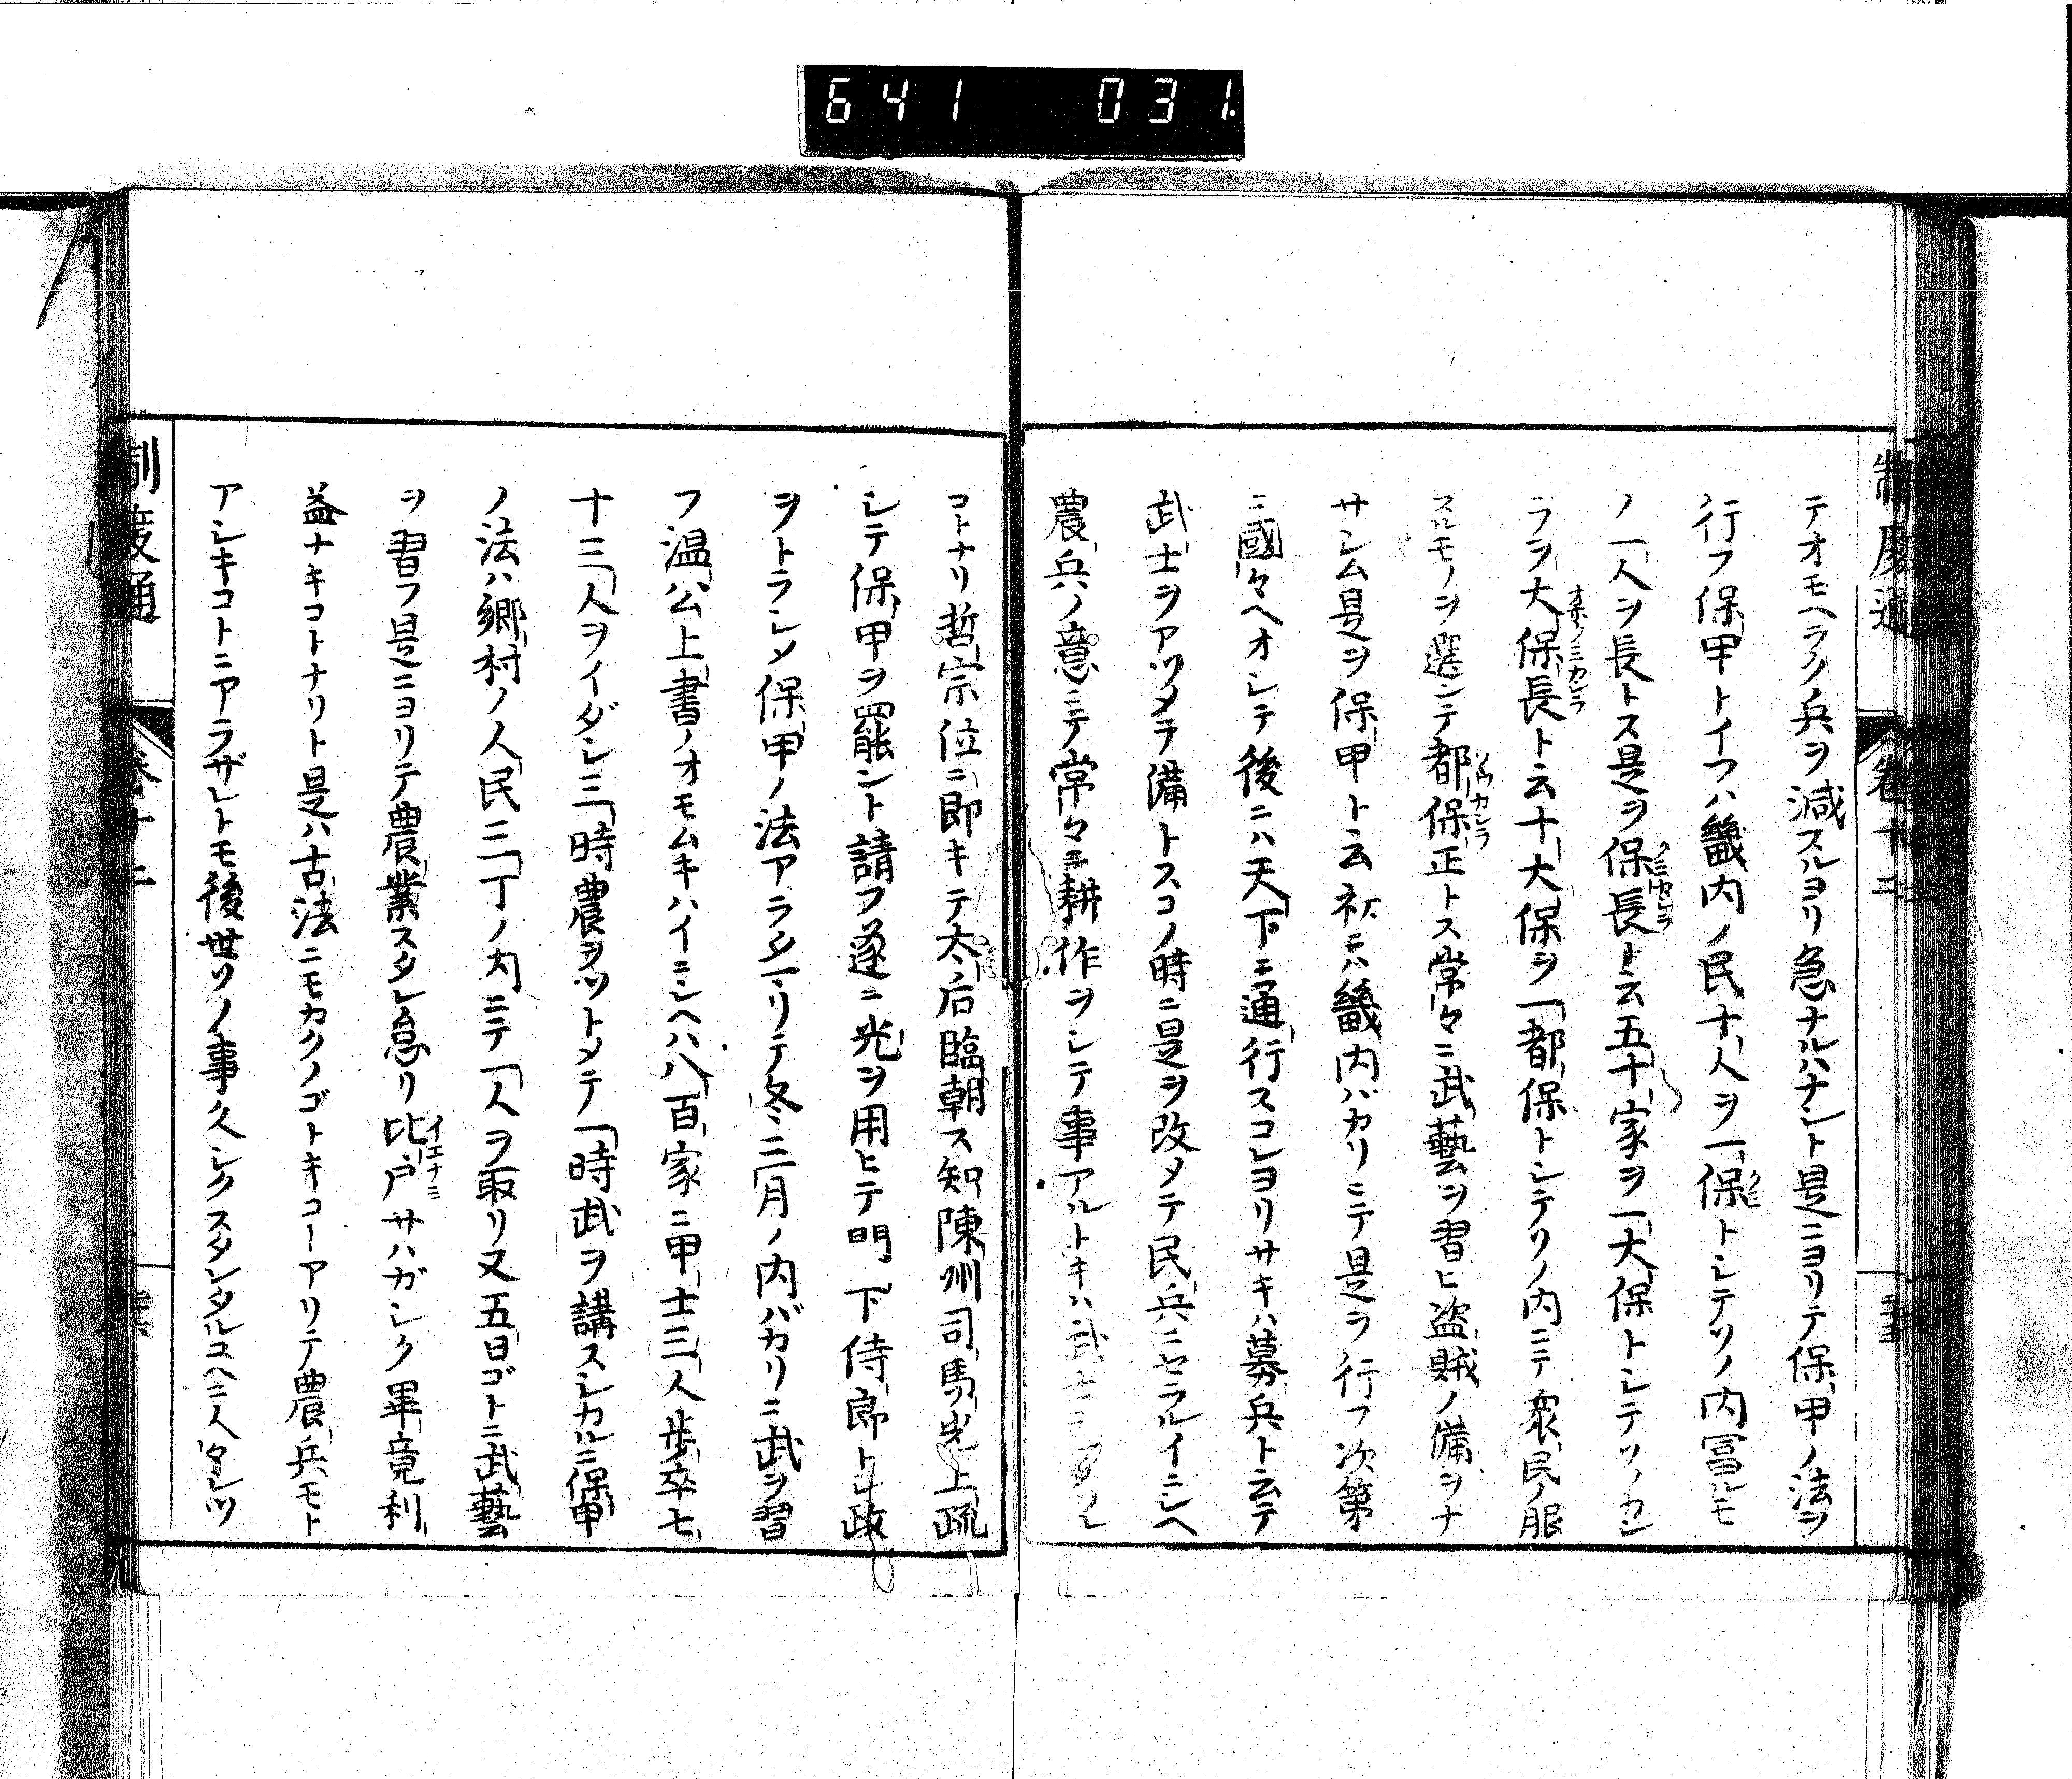 641 031.
制度通 卷十二
テオモヘラク兵ヲ減スルヨリ急ナルハナント是ニヨリテ保甲ノ法ヲ
行フ保甲トイフハ畿内ノ民十人ヲ一保トシテソノ内冨ルモ
クミ
ノ一人ヲ長トス是ヲ保長ト云五十家ヲ一大保トシテソノカシ
クミカシラ
ラヲ大保長ト云十大保ヲ一都保トシテソノ内ニテ衆民ノ服
オホクミカシラ
スルモノヲ選ンテ都保正トス常々ニ武藝ヲ習ヒ盗賊ノ備ヲナ
サシム是ヲ保甲ト云初ニハ畿内バカリニテ是ヲ行フ次第
ニ國々ヘオシテ後ニハ天下ニ通行スコレヨリサキハ募兵ト云テ
武士ヲアツメテ備トスコノ時ニ是ヲ改メテ民兵ニセラルイニシヘ
農兵ノ意ニテ常々ニ耕作ヲシテ事アルトキハ武士ニ
コトナリ哲宗位ニ即キテ太后臨朝ス知陳州司馬光上疏
シテ保甲ヲ罷ント請フ遂ニ光ヲ用ヒテ門下侍郎トシ政
ヲトラシメ保甲ノ法アラタマリテ冬三月ノ内バカリニ武ヲ習
フ温公上書ノオモムキハイニシヘハ八百家ニ甲士三人歩卒七
十二人ヲイダシ三時農ヲツトメテ一時武ヲ講スシカルニ保甲
ノ法ハ郷村ノ人民二丁ノ内ニテ一人ヲ取リ又五日ゴトニ武藝
ヲ習フ是ニヨリテ農業スタレ怠リ比戸サハガシク畢竟利
イエナミ
益ナキコトナリト是ハ古法ニモカクノゴトキコーアリテ農兵モト
アシキコトニアラザレトモ後世ソノ事久シクスタレタルユヘニ人タレツ
制度通 卷十二